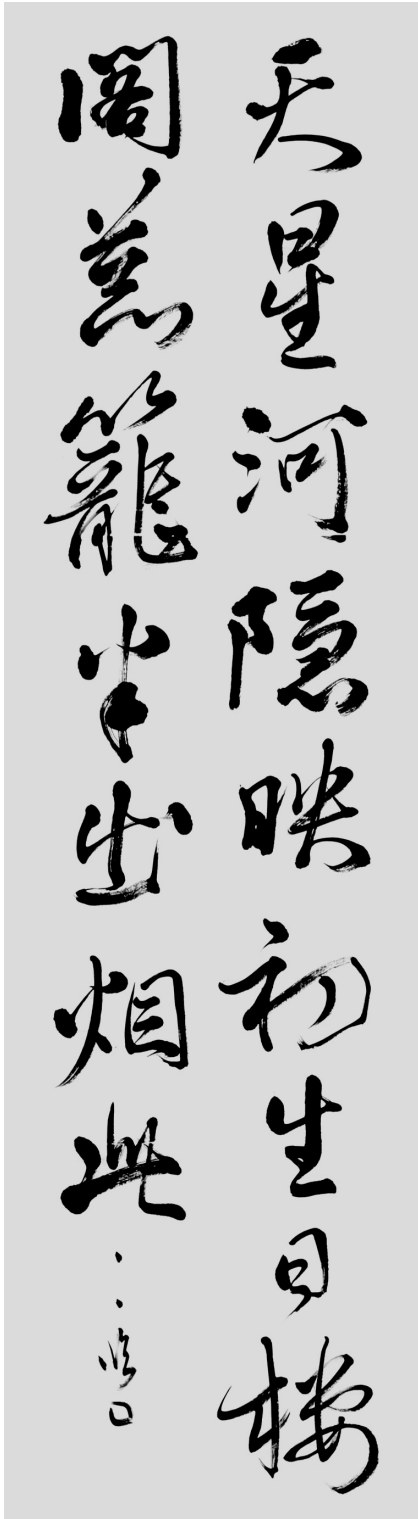 天星河隐映初生日楼
阁葱籠半出烟此